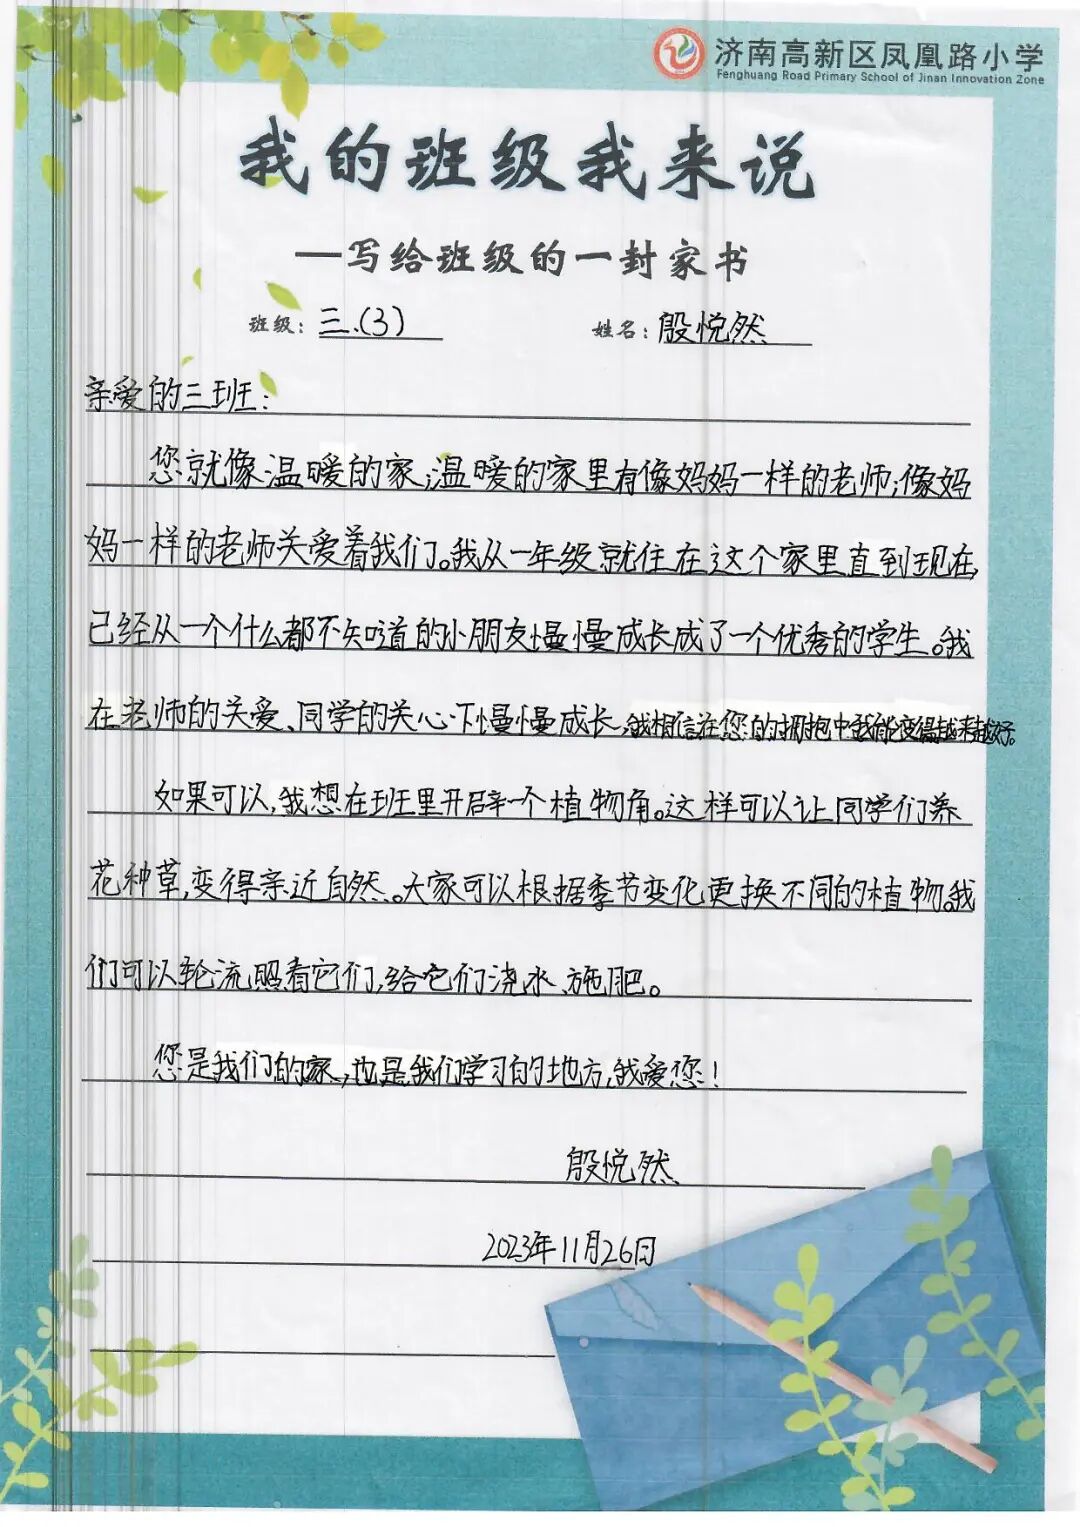 济南高新区凤凰路小学
Fenghuang Road Primary School of Jinan Innovation Zone
我的班级我来说
—写给班级的一封家书
班级：三.(3) 姓名：殷悦然
亲爱的三班：
您就像温暖的家，温暖的家里有像妈妈一样的老师；像妈
妈一样的老师关爱着我们。我从一年级就住在这个家里直到现在，
已经从一个什么都不知道的小朋友慢慢成长成了一个优秀的学生。我
在老师的关爱、同学的关心下慢慢成长，我相信在您的拥抱中我能变得越来越好。
如果可以，我想在班里开辟一个植物角。这样可以让同学们养
花种草，变得亲近自然。大家可以根据季节变化更换不同的植物。我
们可以轮流照看它们，给它们浇水、施肥。
您是我们的家，也是我们学习的地方，我爱您！
殷悦然
2023年11月26日